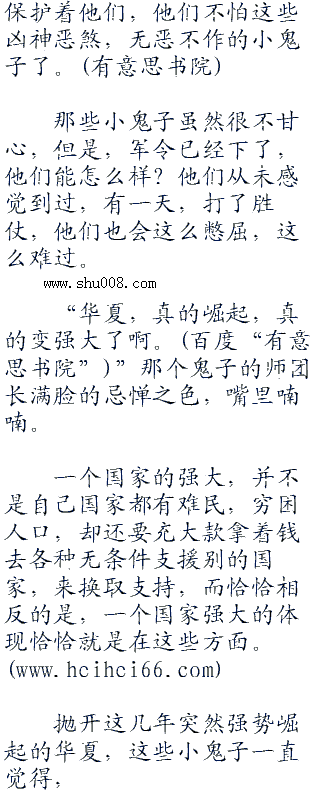 保护着他们，他们不怕这些
凶神恶煞，无恶不作的小鬼
子了。(有意思书院)
那些小鬼子虽然很不甘
心，但是，军令已经下了，
他们能怎么样？他们从未感
觉到过，有一天，打了胜
仗，他们也会这么憋屈，这
么难过。
www.shu008.com
“华夏，真的崛起，真
的变强大了啊。(百度“有意
思书院”)”那个鬼子的师团
长满脸的忌惮之色，嘴里喃
喃。
一个国家的强大，并不
是自己国家都有难民，穷困
人口，却还要充大款拿着钱
去各种无条件支援别的国
家，来换取支持，而恰恰相
反的是，一个国家强大的体
现恰恰就是在这些方面。
(www.hcihci66.com)
抛开这几年突然强势崛
起的华夏，这些小鬼子一直
觉得，